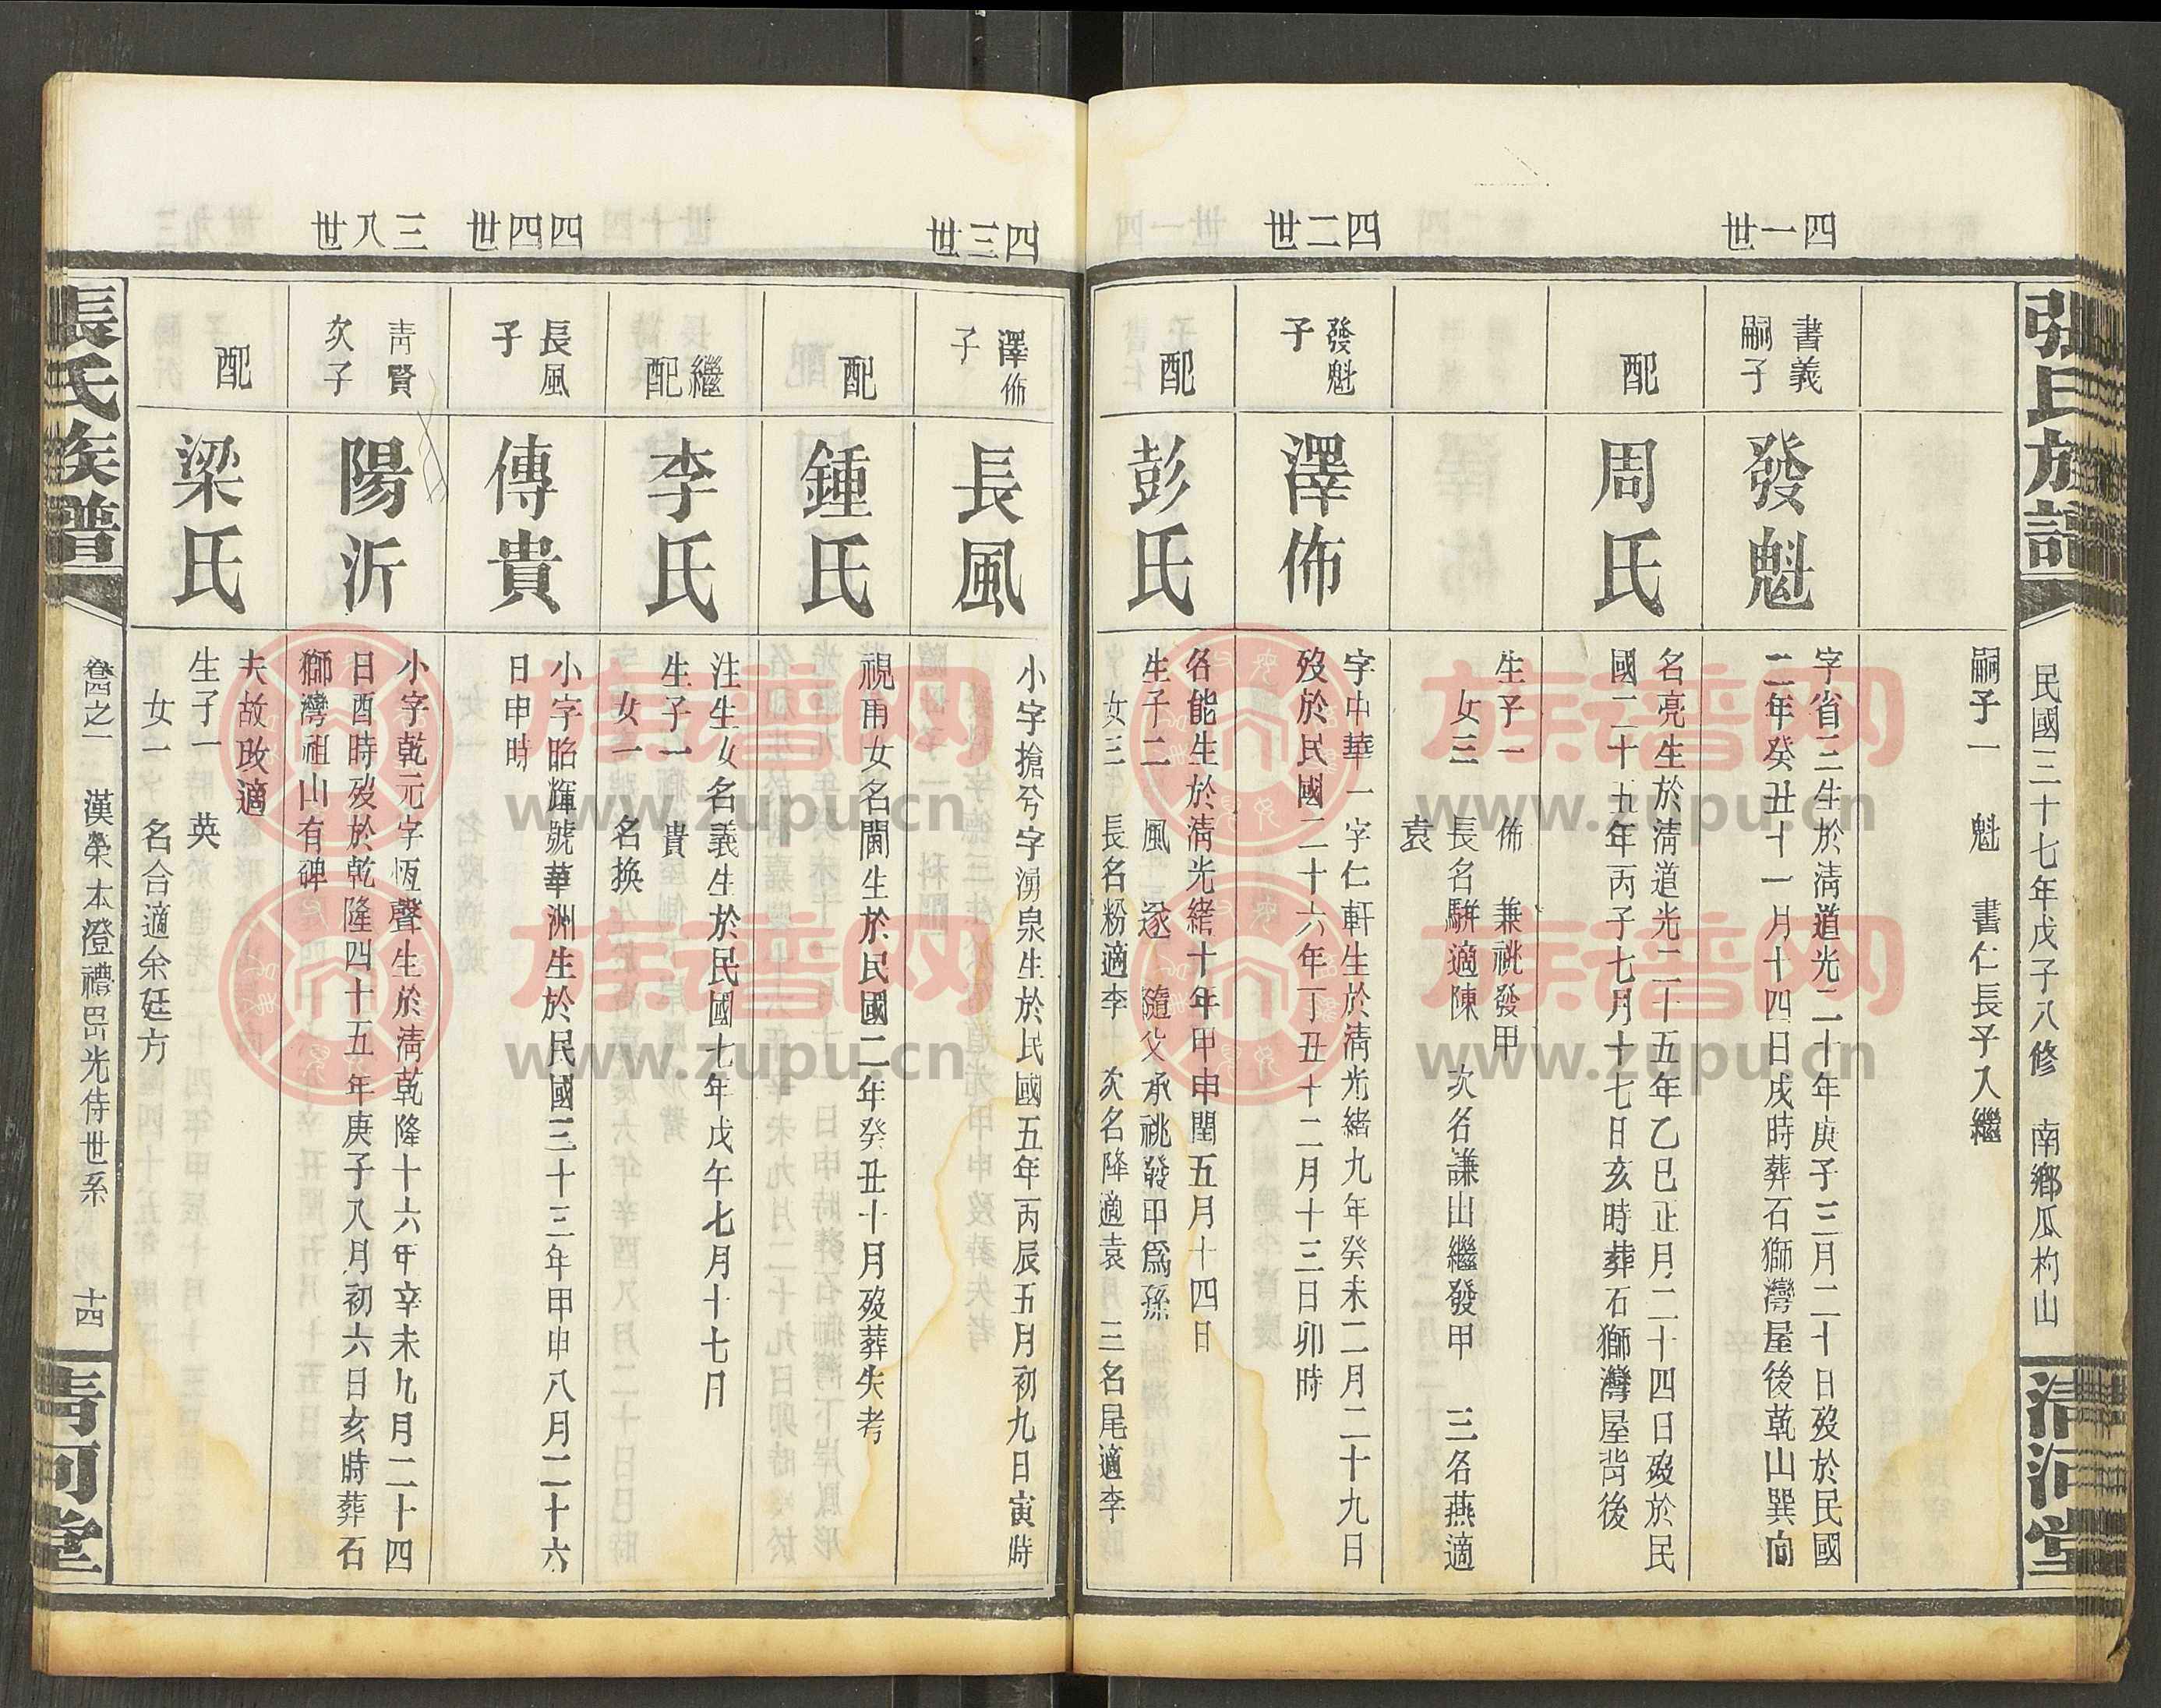 張氏族譜
民國三十七年戊子八修
南鄉瓜杓山
清河堂
嗣子一 魁 書仁長子入繼
四一世
書義
嗣子
發魁
字省三生於清道光二十年庚子三月二十日歿於民國
二年癸丑十一月十四日戌時葬石獅灣屋後乾山巽向
配
周氏
名亮生於清道光二十五年乙巳正月二十四日歿於民
國二十五年丙子七月十七日亥時葬石獅灣屋背後
生子一 佈 兼祧發甲
女三 長名駢適陳 次名謙山繼發甲 三名燕適
袁
四二世
發魁
子
澤佈
字中華一字仁軒生於清光緒九年癸未二月二十九日
歿於民國二十六年丁丑十二月十三日卯時
配
彭氏
名能生於清光緒十年甲申閏五月十四日
生子二 風 遂 隨父承祧發甲為孫
女三 長名粉適李 次名降適袁 三名尾適李
四三世
澤佈
子
長風
小字搶兮字湧泉生於民國五年丙辰五月初九日寅時
配
鍾氏
視甫女名閫生於民國二年癸丑十月歿葬失考
繼
配
李氏
注生女名義生於民國七年戊午七月十七日
生子一 貴
女一 名换
四四世
長風
子
傳貴
小字昭輝號華洲生於民國三十三年甲申八月二十六
日申時
三八世
青賢
次子
陽沂
小字乾元字恆聲生於清乾隆十六年辛未九月二十四
日酉時歿於乾隆四十五年庚子八月初六日亥時葬石
獅灣祖山有碑
配
梁氏
夫故改適
生子一 英
女一 名合適余廷方
張氏族譜
漢榮本澄禮𠯑光侍世系
十四
清河堂
族谱网
www.zupu.cn
族谱网
www.zupu.cn
族谱网
www.zupu.cn
族谱网
www.zupu.cn